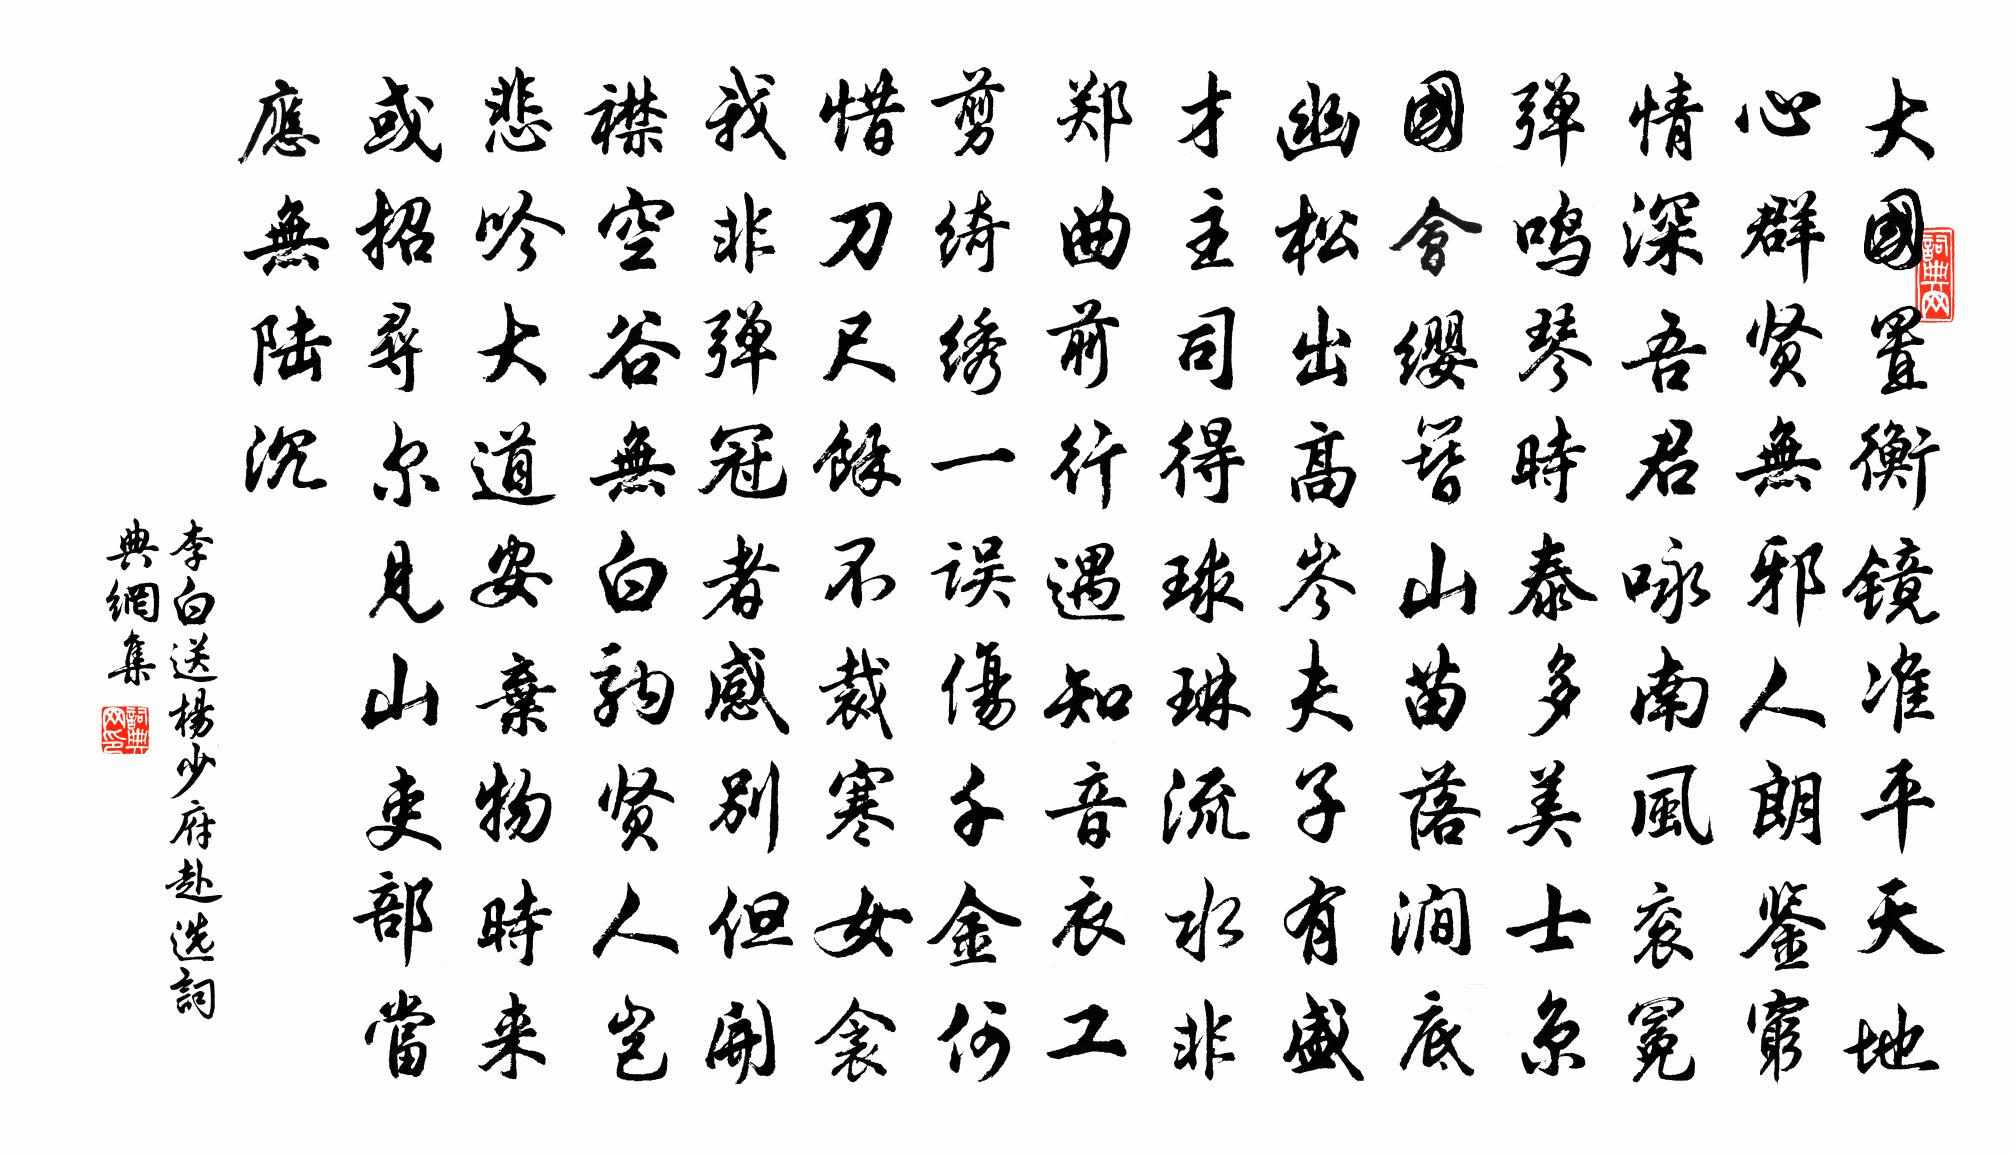 大國置衡镜准平天地
心群贤無邪人朗鉴窮
情深吾君咏南風衮冕
弹鸣琴時泰多美士京
國會缨簪山苗落涧底
幽松出高岑夫子有盛
才主司得球琳流水非
郑曲前行遇知音衣工
剪绮绣一误傷千金何
惜刀尺餘不裁寒女衾
我非弹冠者感别但開
襟空谷無白驹贤人岂
悲吟大道安棄物時来
或招尋尔見山吏部當
應無陆沉
李白送楊少府赴选詞
典網集
詞典网
詞典网印